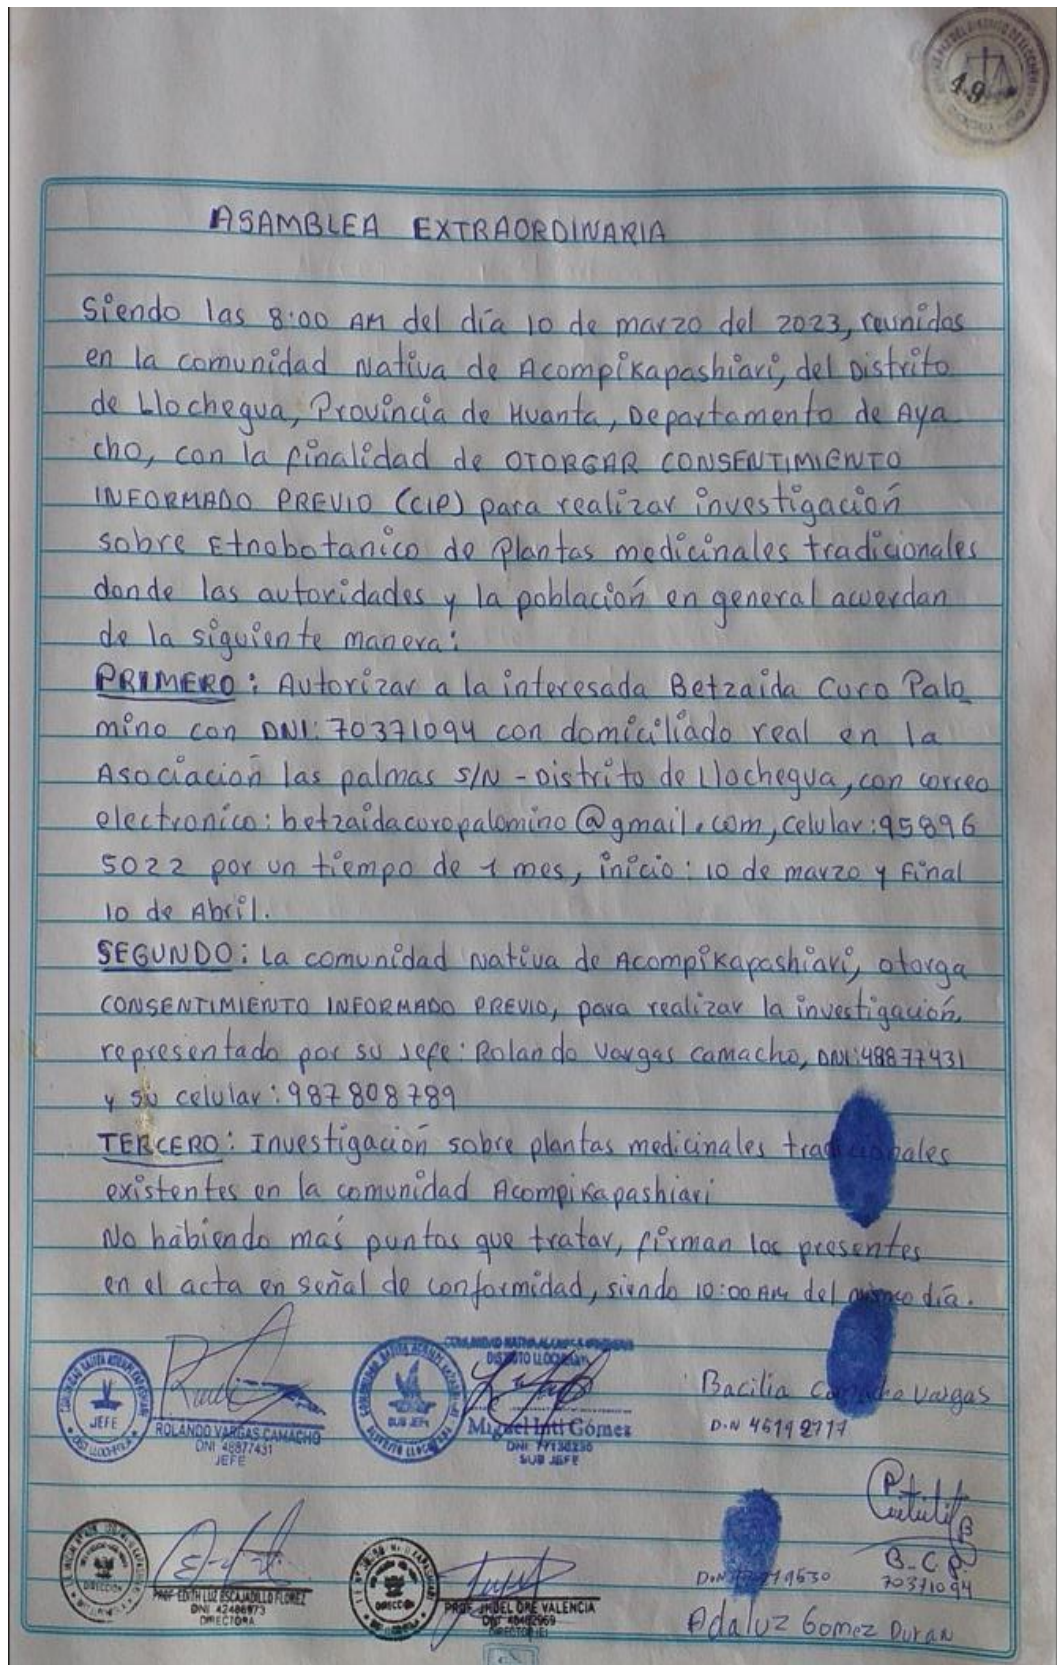 49
ASAMBLEA EXTRAORDINARIA
Siendo las 8:00 AM del día 10 de marzo del 2023, reunidos
en la comunidad Nativa de Acompikapashiari, del Distrito
de Llochegua, Provincia de Huanta, Departamento de Aya
cho, con la finalidad de OTORGAR CONSENTIMIENTO
INFORMADO PREVIO (CIP) para realizar investigación
sobre Etnobotanico de Plantas medicinales tradicionales
donde las autoridades y la población en general acuerdan
de la siguiente manera:
PRIMERO: Autorizar a la interesada Betzaida Curo Palo
mino con DNI: 70371094 con domiciliado real en la
Asociación las palmas S/N - Distrito de Llochegua, con correo
electronico: betzaidacuropalomino@gmail.com, celular: 95896
5022 por un tiempo de 1 mes, inicio: 10 de marzo y Final
10 de Abril.
SEGUNDO: La comunidad Nativa de Acompikapashiari, otorga
CONSENTIMIENTO INFORMADO PREVIO, para realizar la investigación,
representado por su Jefe: Rolando Vargas Camacho, DNI: 48877431
y su celular: 987808789
TERCERO: Investigación sobre plantas medicinales tradicionales
existentes en la comunidad Acompikapashiari
No habiendo más puntos que tratar, firman los presentes
en el acta en señal de conformidad, siendo 10:00 AM del mismo día.
JEFE
ROLANDO VARGAS CAMACHO
DNI 48877431
JEFE
SUB JEFE
DISTRITO LLOCHEGUA
Miguel Inti Gómez
SUB JEFE
Bacilia Camacho Vargas
DIRECCIÓN
PROF. EDITH LUZ ESCAJADILLO FLOREZ
DNI 42486973
DIRECTORA
DIRECCIÓN
VALENCIA
B.C.P.
70371094
Adaluz Gomez Duran